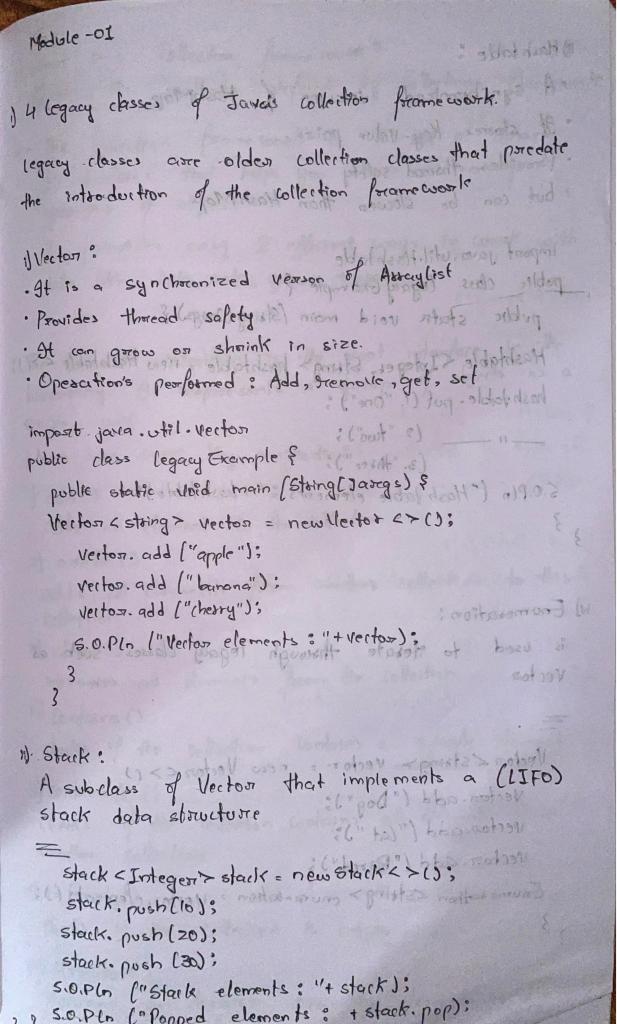 Module -01
1) 4 legacy classes of Java's collection framework.
legacy classes are older collection classes that predate
the introduction of the collection framework
i) Vector :
• It is a synchronized version of Arraylist
• Provides thread safety
• It can grow or shrink in size.
• Operation's performed : Add, remove, get, set
import java.util.vector
public class legacy Example {
public static void main (String[]args) {
Vector <string> vector = new Vector <> ();
vector. add ("apple");
vector. add ("banana");
vector. add ("cherry");
S.O.Pln ("Vector elements : "+vector);
}
}
ii) Stack :
A subclass of Vector that implements a (LIFO)
stack data structure
Stack <Integer> stack = new Stack <> ();
stack. push (10);
stack. push (20);
stack. push (30);
S.O.Pln ("Stack elements : "+ stack);
S.O.Pln ("Popped elements : + stack. pop);